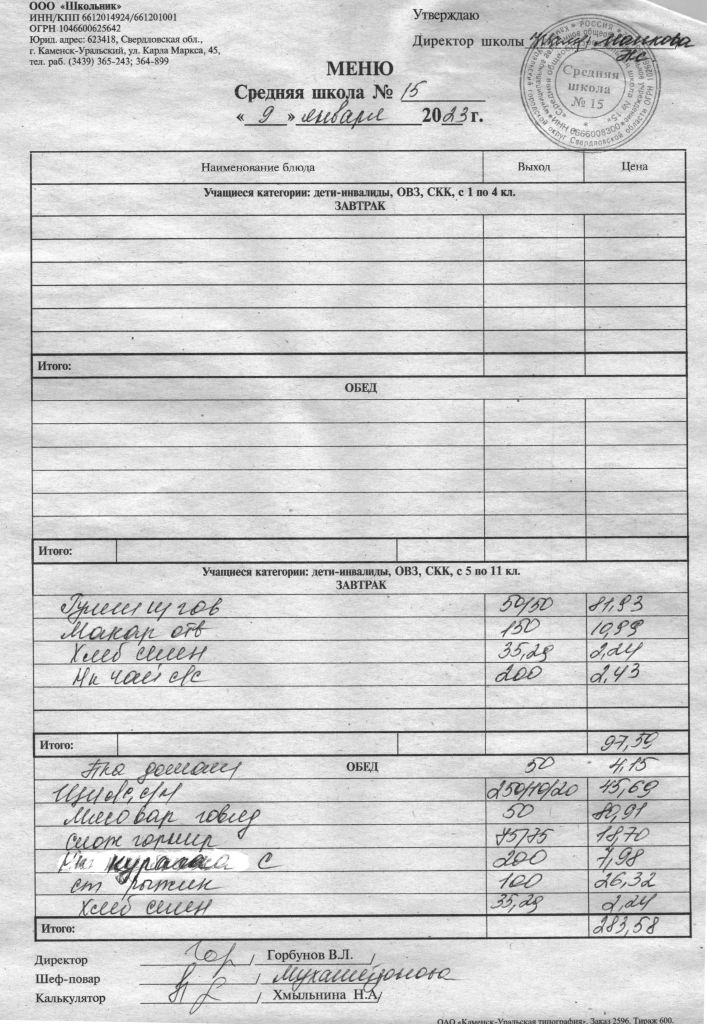 ООО «Школьник»
ИНН/КПП 6612014924/661201001
ОГРН 1046600625642
Юрид. адрес: 623418, Свердловская обл.,
г. Каменск-Уральский, ул. Карла Маркса, 45,
тел. раб. (3439) 365-243; 364-899
Утверждаю
Директор школы
Средняя
школа
№ 15
МЕНЮ
Средняя школа № 15
« 9 » января 2023 г.
Наименование блюда Выход Цена
Учащиеся категории: дети-инвалиды, ОВЗ, СКК, с 1 по 4 кл.
ЗАВТРАК
Итого:
ОБЕД
Итого:
Учащиеся категории: дети-инвалиды, ОВЗ, СКК, с 5 по 11 кл.
ЗАВТРАК
Гуляш из гов 50/50 81,93
Макар отв 150 10,99
Хлеб 35,29 2,24
чай с/с 200 2,43
Итого: 97,59
ОБЕД
домашн 50 4,15
Щи 250/10/20 45,69
Мясо вар говяд 50 80,91
слож гарнир 85/75 18,70
С 200 7,98
100 26,32
Хлеб 35,29 2,24
Итого: 283,58
Директор / Горбунов В.Л. /
Шеф-повар /
Калькулятор / Хмыльнина Н.А/
ОАО «Каменск-Уральская типография». Заказ 2596. Тираж 600.